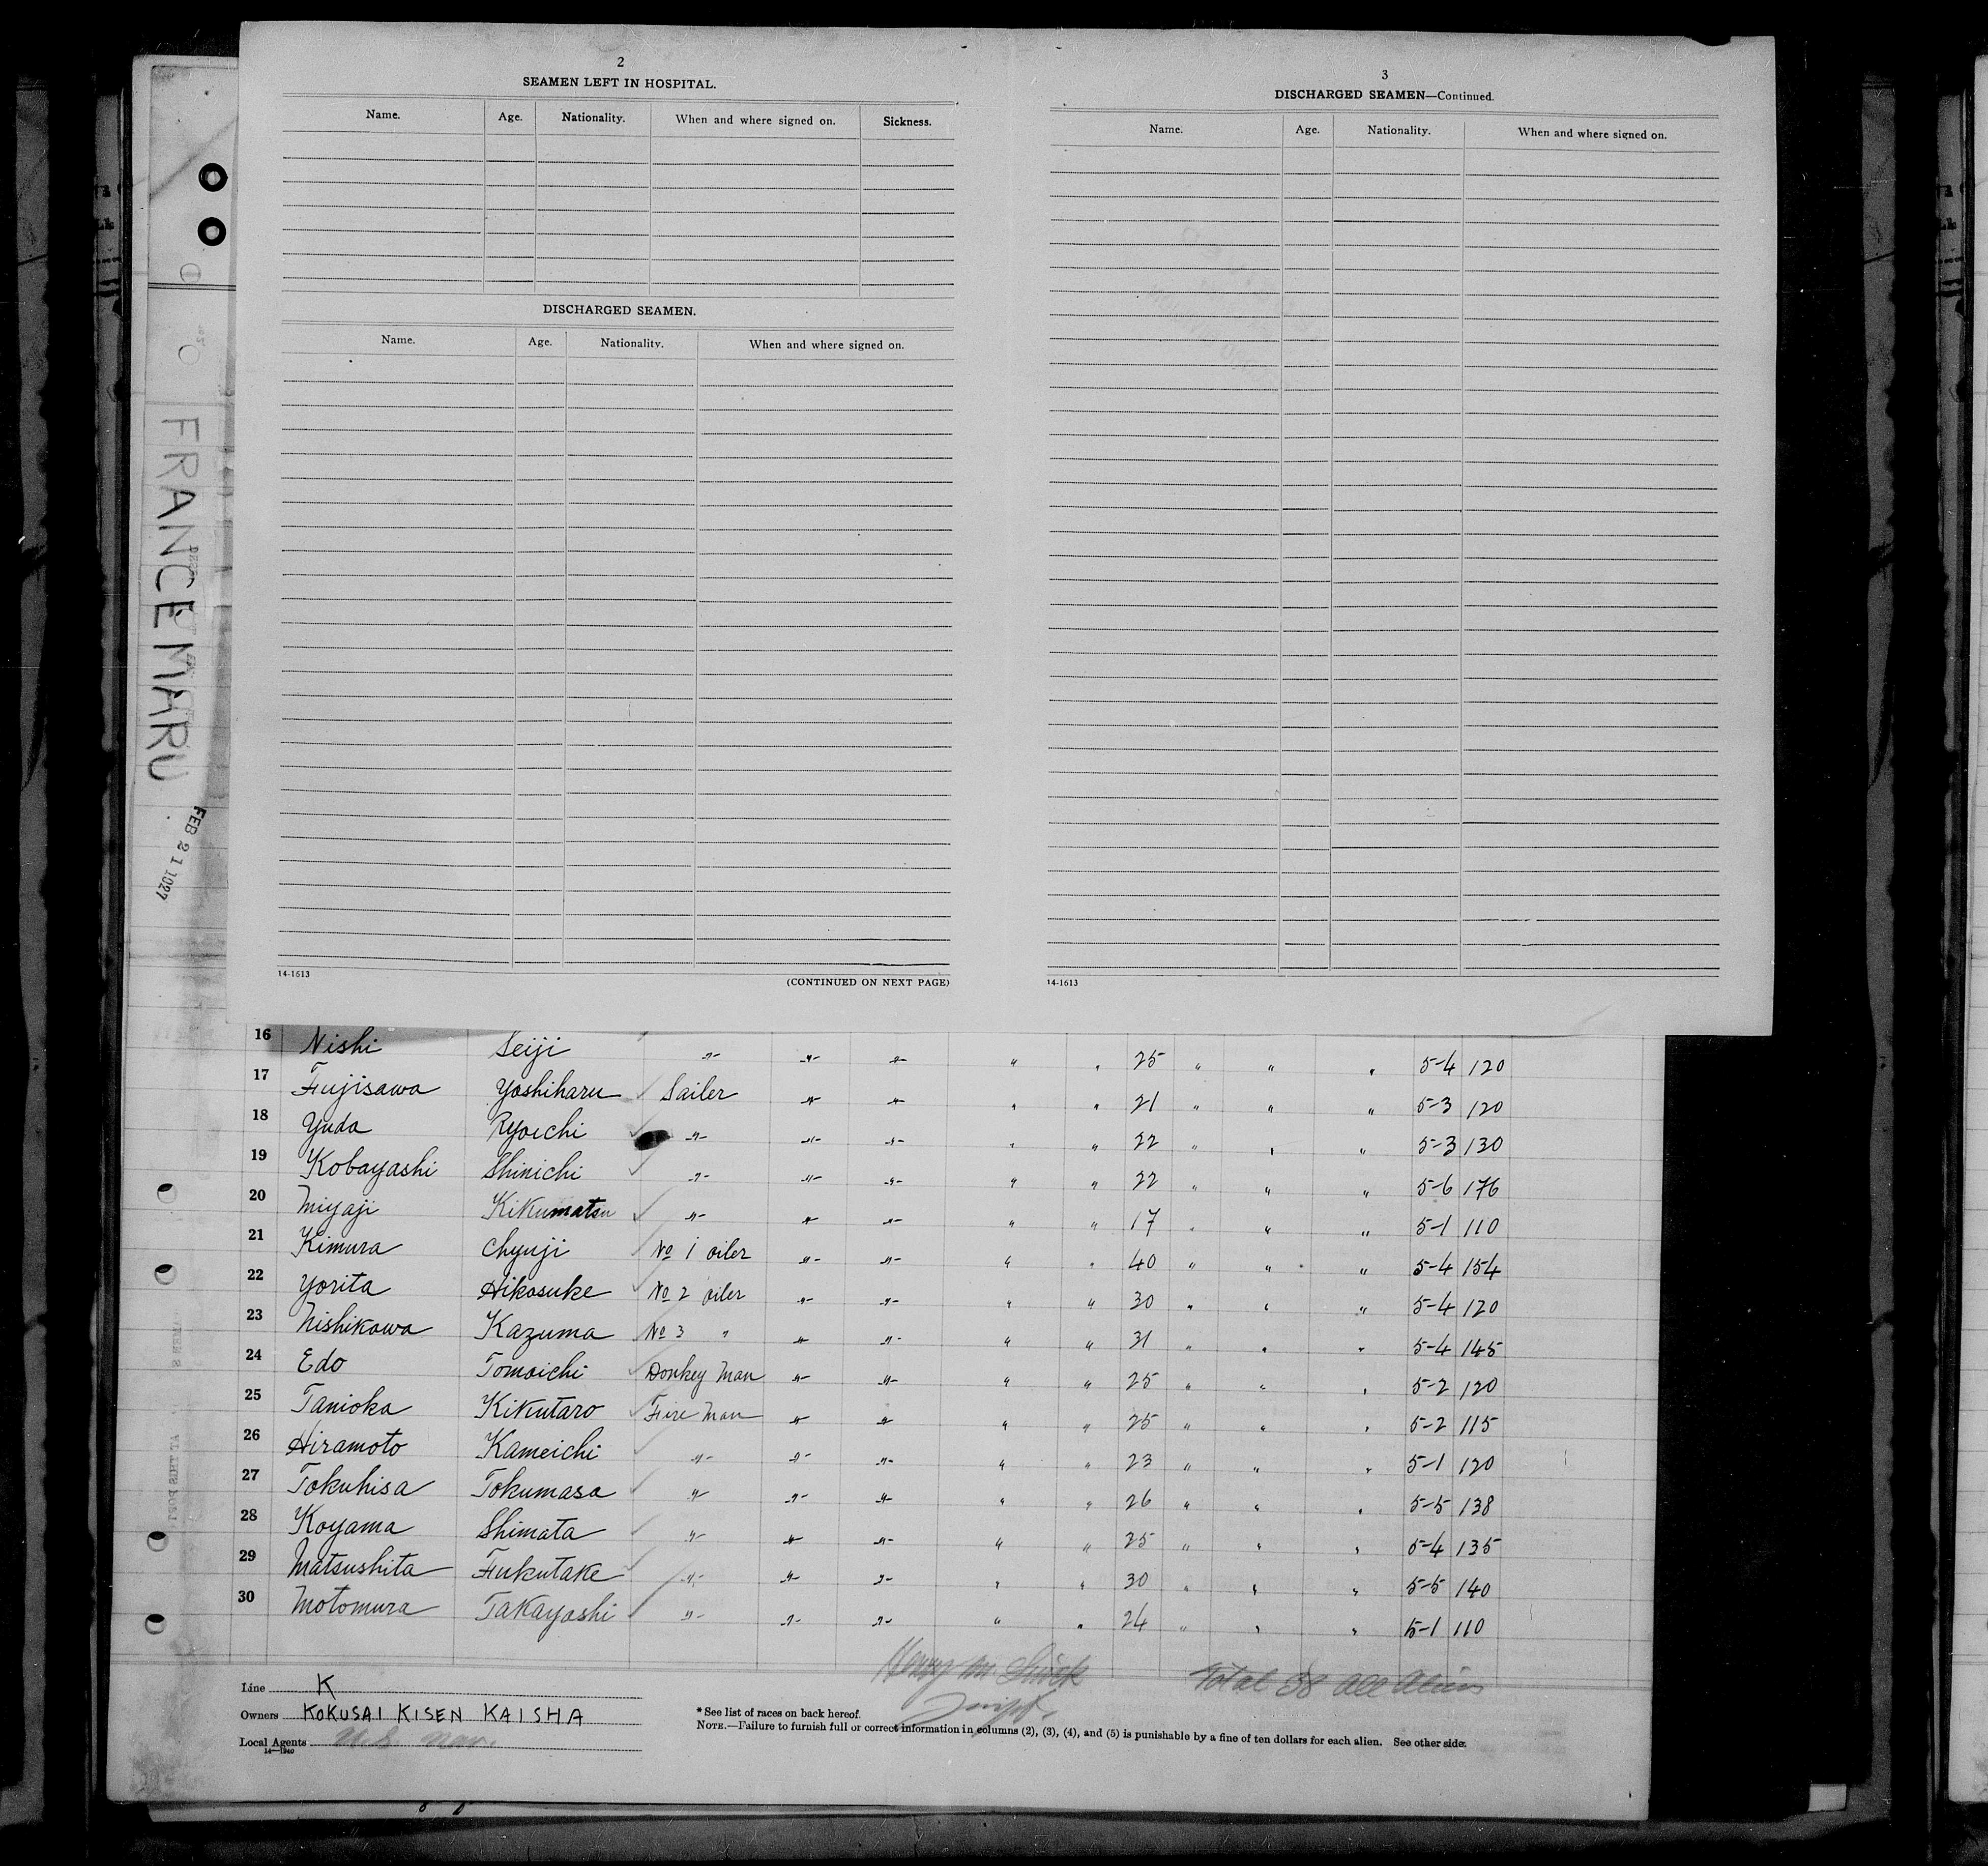 FRANCE MARU
FEB 21 1927
2
SEAMEN LEFT IN HOSPITAL.
Name. Age. Nationality. When and where signed on. Sickness.
DISCHARGED SEAMEN.
Name. Age. Nationality. When and where signed on.
14-1613
(CONTINUED ON NEXT PAGE)
3
DISCHARGED SEAMEN—Continued.
Name. Age. Nationality. When and where signed on.
14-1613
16 Nishi Seiji " " " " " 25 " " " 5-4 120
17 Fujisawa Yoshiharu Sailer " " " " 21 " " " 5-3 120
18 Yuda Ryoichi " " " " " 22 " " " 5-3 130
19 Kobayashi Shinichi " " " " " 22 " " " 5-6 176
20 Miyaji Kikumatsu " " " " " 17 " " " 5-1 110
21 Kimura Chyuji No 1 oiler " " " " 40 " " " 5-4 154
22 Yorita Hikosuke No 2 oiler " " " " 30 " " " 5-4 120
23 Nishikawa Kazuma No 3 " " " " " 31 " " " 5-4 145
24 Edo Tomoichi Donkey Man " " " " 25 " " " 5-2 120
25 Tanioka Kikutaro Fire Man " " " " 25 " " " 5-2 115
26 Hiramoto Kameichi " " " " " 23 " " " 5-1 120
27 Tokuhisa Tokumasa " " " " " 26 " " " 5-5 138
28 Koyama Shimata " " " " " 25 " " " 5-4 135
29 Matsushita Fukutake " " " " " 30 " " " 5-5 140
30 Motomura Takayoshi " " " " " 24 " " " 5-1 110
Henry M.
Total 38 all Aliens
Line K
Owners KOKUSAI KISEN KAISHA
Local Agents
14-1940
* See list of races on back hereof.
NOTE.—Failure to furnish full or correct information in columns (2), (3), (4), and (5) is punishable by a fine of ten dollars for each alien. See other side.